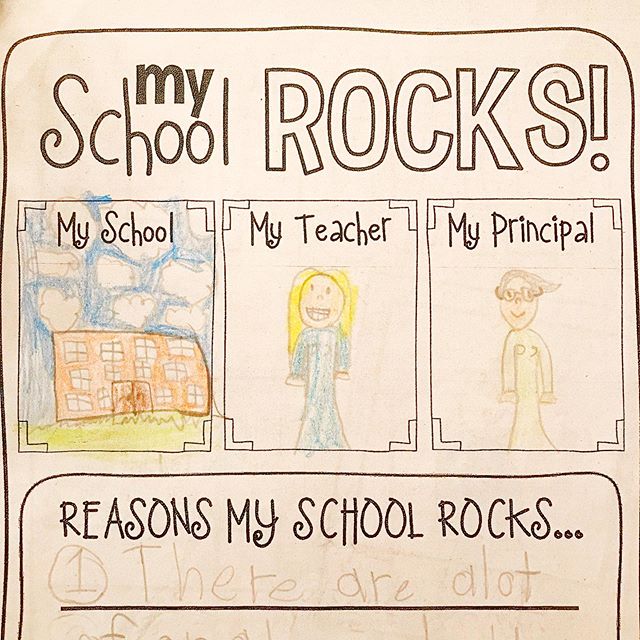 My School ROCKS!
My School
My Teacher
My Principal
REASONS MY SCHOOL ROCKS...
① There are alot
of